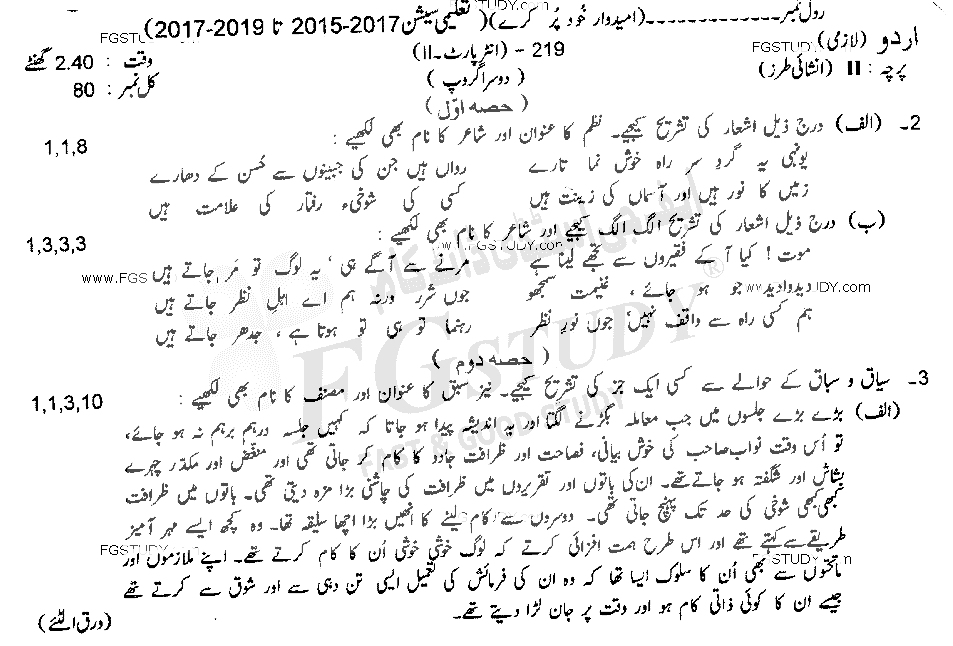 رول نمبر ـــــــــــــــ (امیدوار خود پُر کرے) (تعلیمی سیشن 2017-2015 تا 2019-2017)
اردو (لازمی) 219 - (انٹر پارٹ - II) وقت : 2.40 گھنٹے
پرچہ : II (انشائی طرز) (دوسرا گروپ) کل نمبر : 80
(حصہ اوّل)
2۔ (الف) درج ذیل اشعار کی تشریح کیجیے۔ نظم کا عنوان اور شاعر کا نام بھی لکھیے : 1,1,8
یونہی یہ گردِ سرِ راہ خوش نما تارے رواں ہیں جن کی جبینوں سے حُسن کے دھارے
زمیں کا نور ہیں اور آسماں کی زینت ہیں کسی کی شوخیء رفتار کی علامت ہیں
(ب) درج ذیل اشعار کی تشریح الگ الگ کیجیے اور شاعر کا نام بھی لکھیے : 1,3,3,3
موت! کیا آ کے فقیروں سے تجھے لینا ہے مرنے سے آگے ہی ' یہ لوگ تو مَر جاتے ہیں
دید وادید جو ہو جائے ، غنیمت سمجھو جوں شرر ورنہ ہم اے اہلِ نظر جاتے ہیں
ہم کسی راہ سے واقف نہیں جوں نورِ نظر رہنما تو ہی تو ہوتا ہے ، جدھر جاتے ہیں
(حصہ دوم)
3۔ سیاق و سباق کے حوالے سے کسی ایک جز کی تشریح کیجیے۔ نیز سبق کا عنوان اور مصنف کا نام بھی لکھیے : 1,1,3,10
(الف) بڑے بڑے جلسوں میں جب معاملہ بگڑنے لگتا اور یہ اندیشہ پیدا ہو جاتا کہ کہیں جلسہ درہم برہم نہ ہو جائے ،
تو اُس وقت نواب صاحب کی خوش بیانی، فصاحت اور ظرافت جادو کا کام کر جاتی تھی اور منغض اور مکدّر چہرے
بشاش اور شگفتہ ہو جاتے تھے۔ ان کی باتوں اور تقریروں میں ظرافت کی چاشنی بڑا مزہ دیتی تھی۔ باتوں میں ظرافت
کبھی کبھی شوخی کی حد تک پہنچ جاتی تھی۔ دوسروں سے کام لینے کا انھیں بڑا اچھا سلیقہ تھا۔ وہ کچھ ایسے مہر آمیز
طریقے سے کہتے تھے اور اس طرح ہمت افزائی کرتے کہ لوگ خوشی خوشی اُن کا کام کرتے تھے۔ اپنے ملازموں اور
ماتحتوں سے بھی اُن کا سلوک ایسا تھا کہ وہ ان کی فرمائش کی تعمیل ایسی تن دہی سے اور شوق سے کرتے تھے
جیسے ان کا کوئی ذاتی کام ہو اور وقت پر جان لڑا دیتے تھے۔
(ورق الٹیے)
FG STUDY
FAST & GOOD STUDY